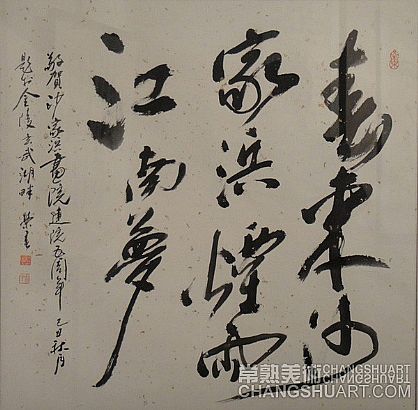 春来沙
家浜煙雨
江南夢
敬賀沙家浜畫院建院五周年 己丑秋月
題於金陵玄武湖畔
常熟美術 CHANGSHUART
CHANGSHUART.COM